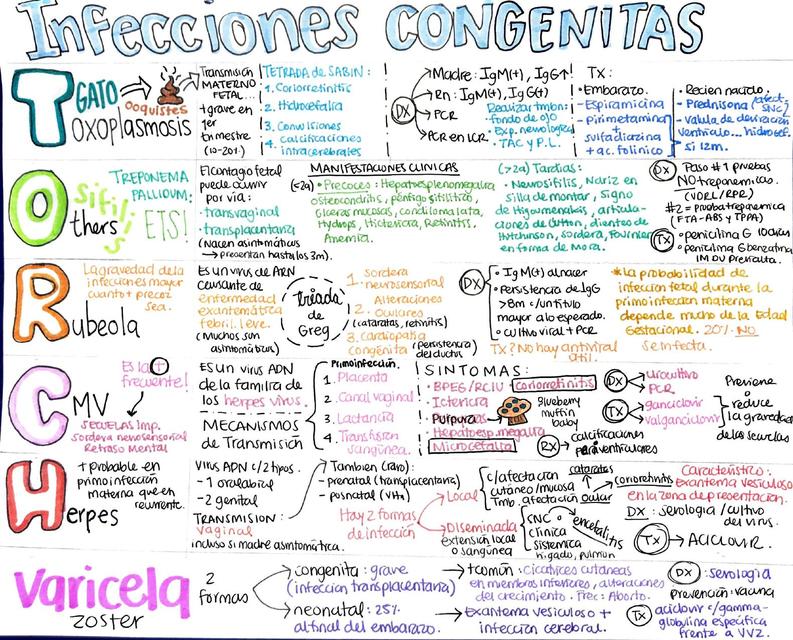 Infecciones CONGENITAS
Toxoplasmosis
GATO
Ooquistes
Transmisión
MATERNO
FETAL...
+grave en
1er
trimestre
(10-20%)
TETRADA de SABIN:
1. Coriorretinitis
2. Hidrocefalia
3. Convulsiones
4. calcificaciones
intracerebrales
DX
Madre: IgM(+), IgG↑
Rn: IgM(+), IgG(t)
PCR
PCR en LCR
Realizar tmbn:
· fondo de ojo
· Exp. neurologica
· TAC y P.L.
TX:
·Embarazo.
-Espiramicina
-pirimetamina
+
sulfadiazina
+ac. folinico
·Recien nacido.
-Prednisona (afect. SNC)
-valvula de derivación
ventriculo... hidrocef.
si 12m.
Others
Sifilis
TREPONEMA
PALLIDUM:
ETS!
El contagio fetal
puede ocurrir
por via:
·transvaginal
·transplacentaria
(Nacen asintomáticos
→ presentan hasta los 3m).
MANIFESTACIONES CLINICAS
(<2a) ·Precoces: Hepatoesplenomegalia
osteocondritis, pénfigo sifilitico
úlceras mucosas, condilomalata,
Hydrops, Hictericia, Retinitis.
Anemia.
(>2a) Tardias:
·Neurosifilis, Nariz en
silla de montar, signo
de Higoumenakis, articula-
ciones de Clutton, dientes de
Hutchinson, sordera, Fournier
en forma de Mora.
DX
Paso #1 pruebas
NO treponemicas.
(VDRL/RPR)
#2 = prueba treponemica
(FTA-ABS y TPPA)
TX
·penicilina G 10dias
·penicilina G benzatina
IM DU
Rubeola
La gravedad de la
infección es mayor
cuanto + precoz
sea.
Es un virus de ARN
causante de
enfermedad
exantemática
febril leve.
(Muchos son
asintomáticos)
Triada
de
Greg
1. Sordera
neurosensorial
2. Alteraciones
oculares
(cataratas, retinitis)
3. Cardiopatía
congénita
(persistencia
del ductus)
DX
·IgM(+) al nacer
·Persistencia de IgG
>8m c/un título
mayor al o esperado.
·cultivo viral + PCR
TX? No hay antiviral
útil.
*La probabilidad de
infección fetal durante la
primoinfección materna
depende mucho de la Edad
Gestacional. 20% NO
se infecta.
CMV
Es la +
frecuente!
SECUELAS Imp.
Sordera neurosensorial
Retraso Mental
Es un virus ADN
de la familia de
los herpes virus.
MECANISMOS
de Transmisión
Primoinfección.
1. Placenta
2. Canal vaginal
3. Lactancia
4. Transfusión
sanguínea.
SINTOMAS:
·BPEG/RCIU
coriorretinitis
·Ictericia
·Purpuras
Blueberry
muffin
baby
·Hepatoesp.megalia
·Microcefalia
RX
calcificaciones
paraventriculares
DX
urocultivo
PCR
TX
ganciclovir
valganciclovir
Previene
o
reduce
la gravedad
de las secuelas
Herpes
+ probable en
primoinfección
materna que en
recurrente.
Virus ADN c/2 tipos.
-1 oral labial
-2 genital
TRANSMISION:
vaginal
incluso si madre asintomática.
Tambien (raro):
-prenatal (transplacentaria)
-posnatal (VHx)
Hay 2 formas
de infección
Local
c/afectación
cutáneo/mucosa
Tmb. afectación ocular
cataratas
coriorretinitis
Diseminada
extensión local
o sanguínea
SNC o
clinica
sistemica
hígado, pulmon
encefalitis
Característico:
Exantema vesiculoso
en la zona de presentación.
DX: serologia/cultivo
del virus.
TX → ACICLOVIR.
varicela
zoster
2
formas
congenita: grave
(infección transplacentaria)
neonatal: 25%
al final del embarazo.
+común: cicatrices cutaneas
en miembros inferiores, alteraciones
del crecimiento. Frec: Aborto.
Exantema vesiculoso +
infección cerebral.
DX: serología
prevención: vacuna
TX
aciclovir c/gamma-
globulina especifica
frente a VVZ.